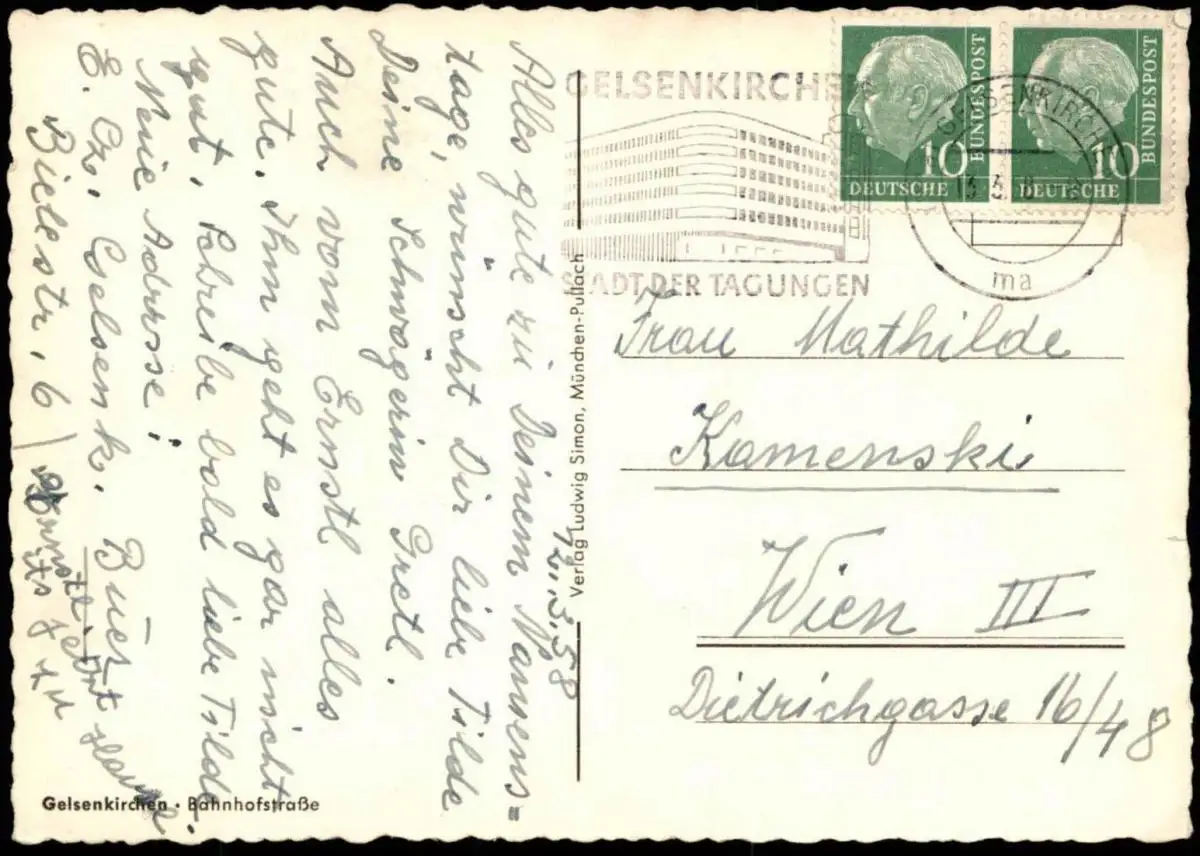 12.3.58
Alles gute zu Deinem Namens=
tage, wünscht Dir liebe Tilde
Deine Schwägerin Gretl.
Auch vom Ernstl alles
gute. Ihm geht es gar nicht
gut. Schreibe bald liebe Tilde.
Neue Adresse!
E. Cz. Gelsenk. Buer
Bielestr. 6
Ernstl
Verlag Ludwig Simon, München-Pullach
Gelsenkirchen · Bahnhofstraße
GELSENKIRCHEN
STADT DER TAGUNGEN
GELSENKIRCH
ma
10
DEUTSCHE
BUNDESPOST
10
DEUTSCHE
BUNDESPOST
Frau Mathilde
Kamenski
Wien III
Dietrichgasse 16/48